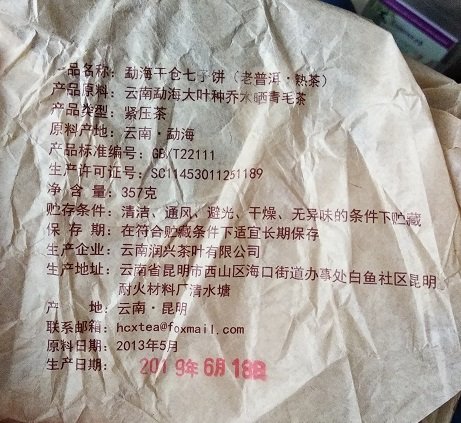 产品名称：勐海干仓七子饼（老普洱·熟茶）
产品原料：云南勐海大叶种乔木晒青毛茶
产品类型：紧压茶
原料产地：云南·勐海
产品标准编号：GB/T22111
生产许可证号：SC11453011251189
净 含 量：357克
贮存条件：清洁、通风、避光、干燥、无异味的条件下贮藏
保 存 期：在符合贮藏条件下适宜长期保存
生产企业：云南润兴茶叶有限公司
生产地址：云南省昆明市西山区海口街道办事处白鱼社区昆明
耐火材料厂清水塘
产 地：云南·昆明
联系邮箱：hcxtea@foxmail.com
原料日期：2013年5月
生产日期： 2019年6月18日